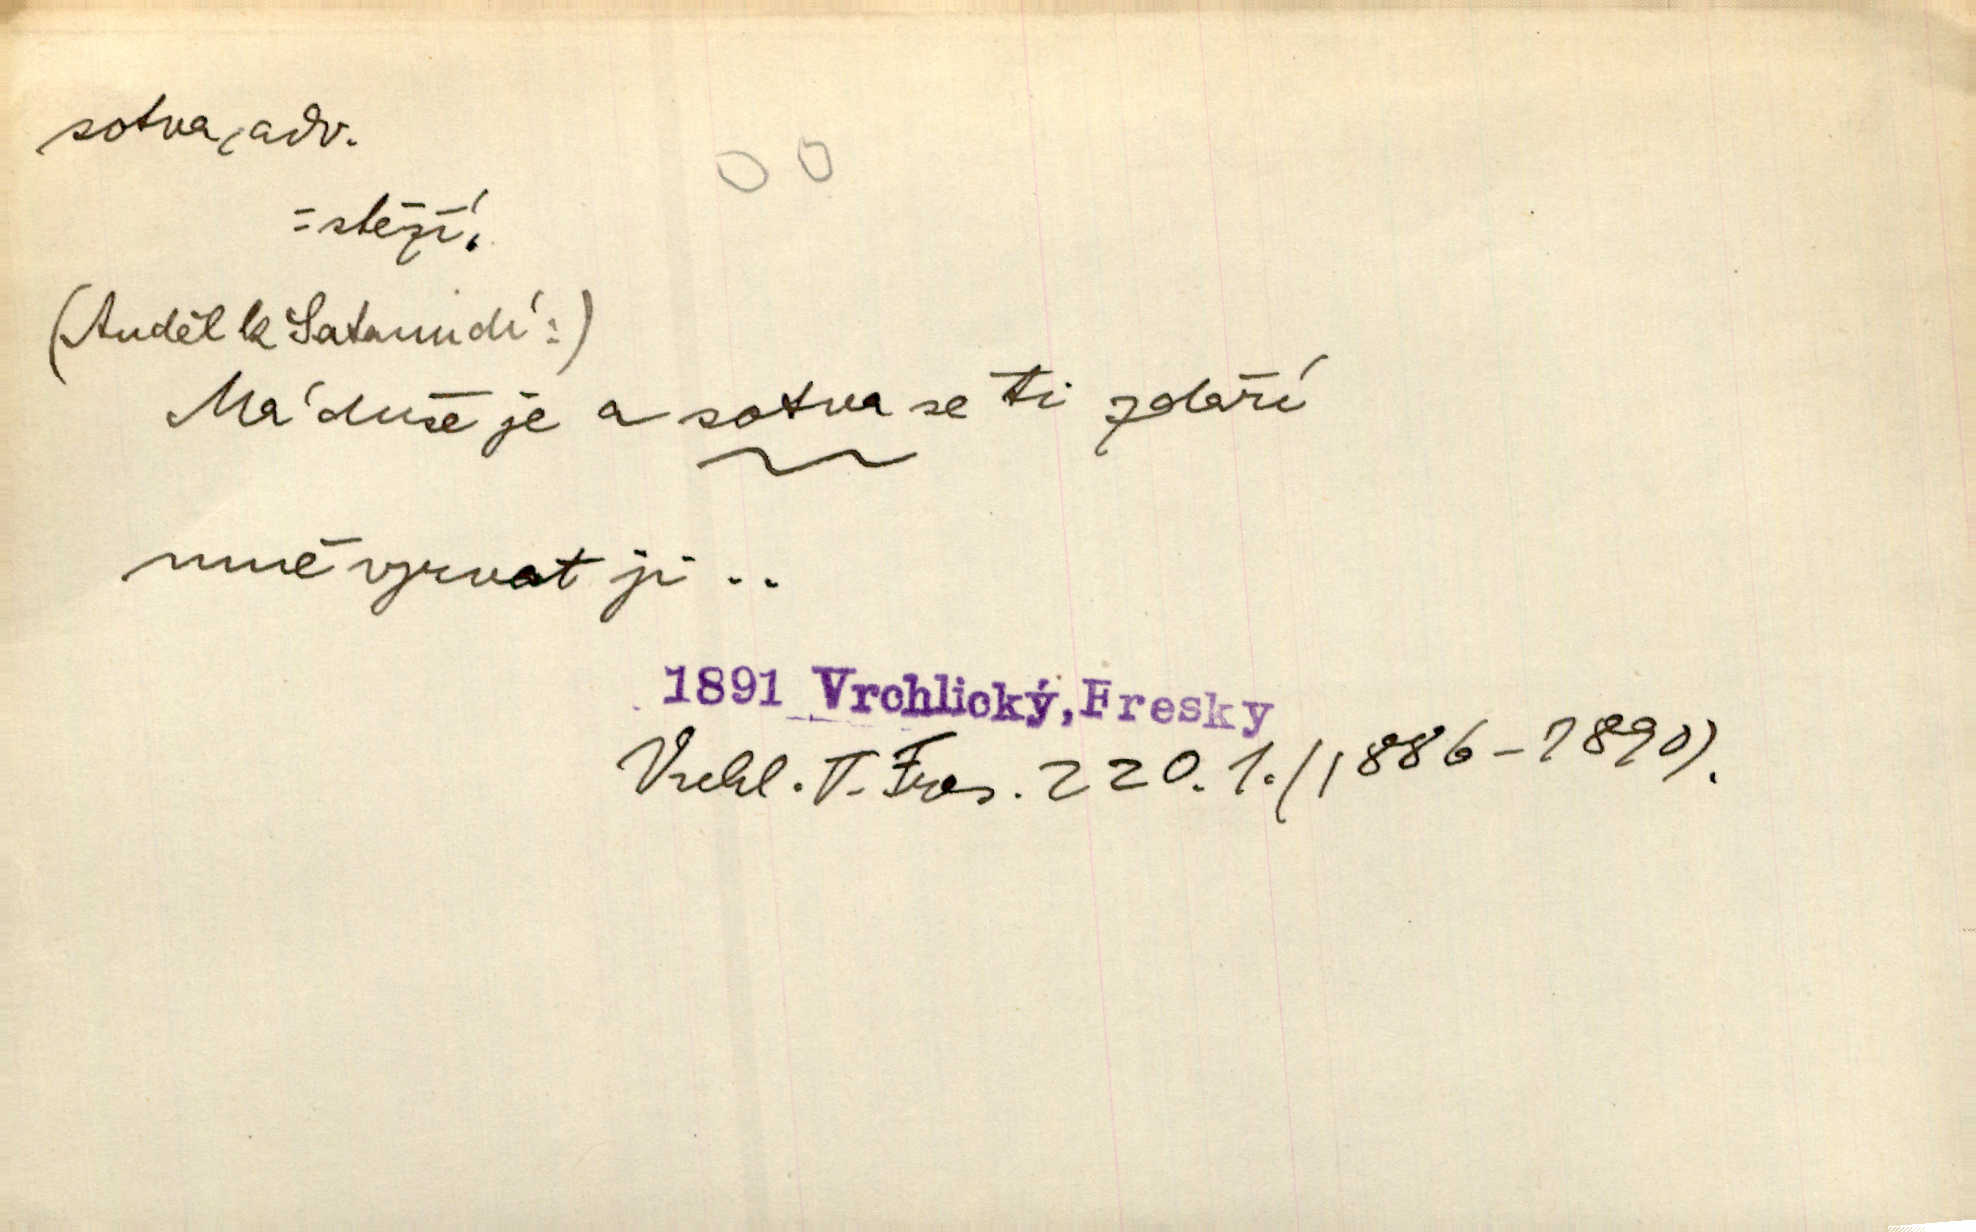 sotva, adv.
= stěží.
(Anděl k Satanu dí:)
Má duše je a sotva se ti zdaří
mně vyrvat ji ..
1891 Vrchlický, Fresky
Vrchl. T. Fres. 220. 1. (1886-1890).